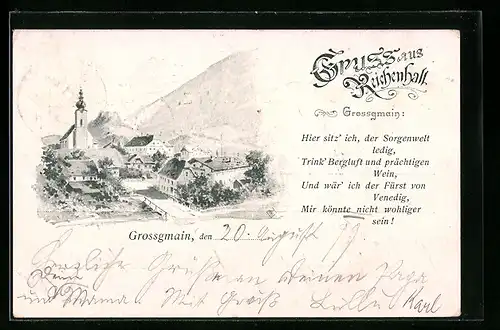 Gruss aus
Reichenhall.
Grossgmain:
Hier sitz' ich, der Sorgenwelt
ledig,
Trink' Bergluft und prächtigen
Wein,
Und wär' ich der Fürst von
Venedig,
Mir könnte nicht wohliger
sein!
Grossgmain, den 20. August
Herzliche Grüße an Deinen Papa
und Mama. Mit Gruß Karl